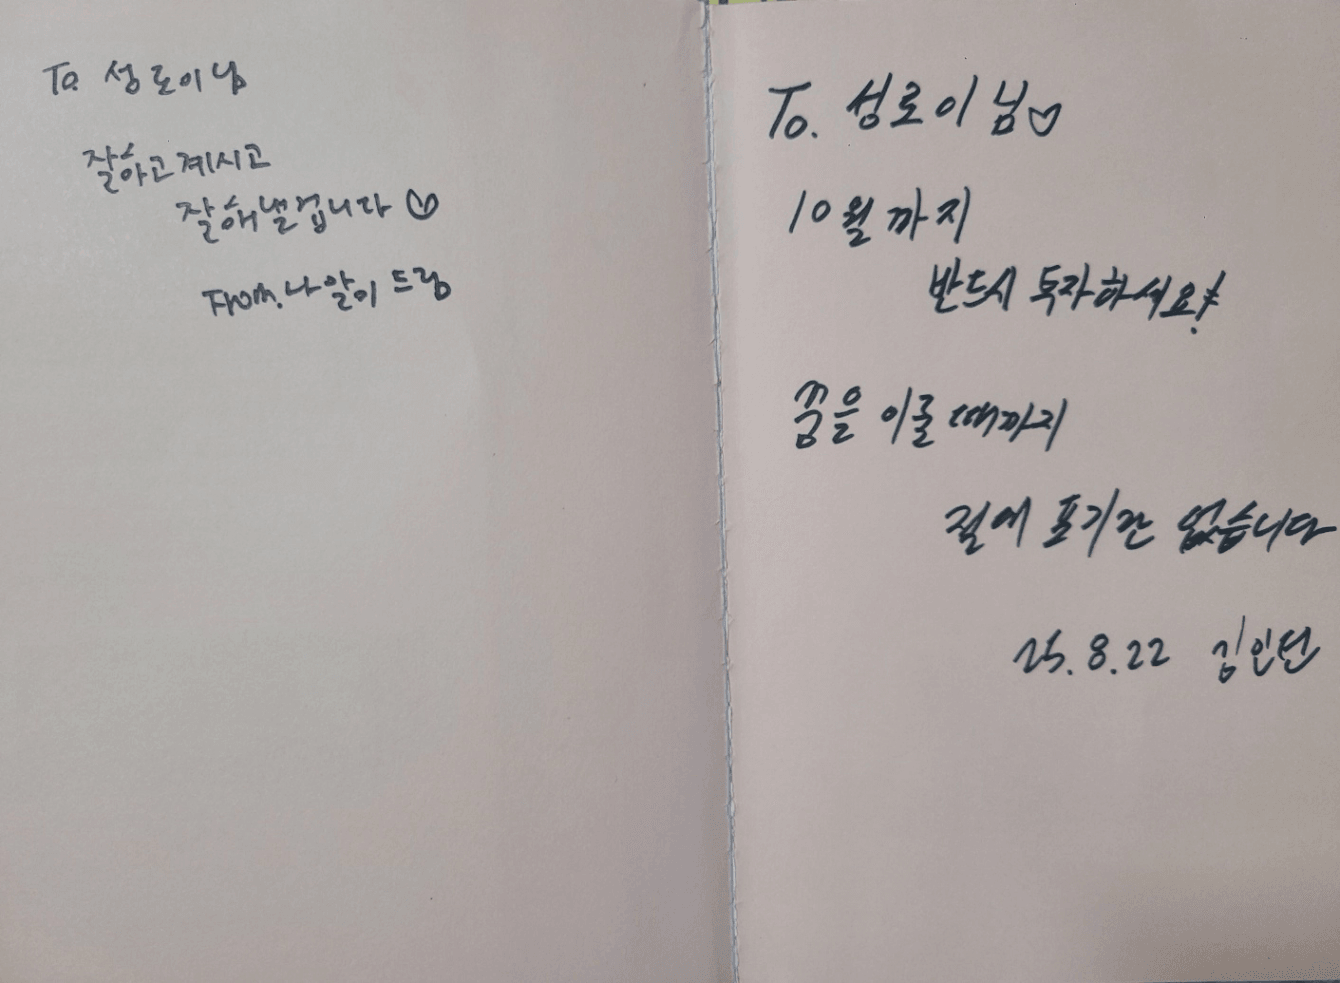 To. 성로이님
잘하고 계시고
잘해낼겁니다 ♡
From. 나알이 드림
To. 성로이님♡
10월까지
반드시 독자하세요!
꿈을 이룰 때까지
절에 포기란 없습니다
25.8.22 김인턴